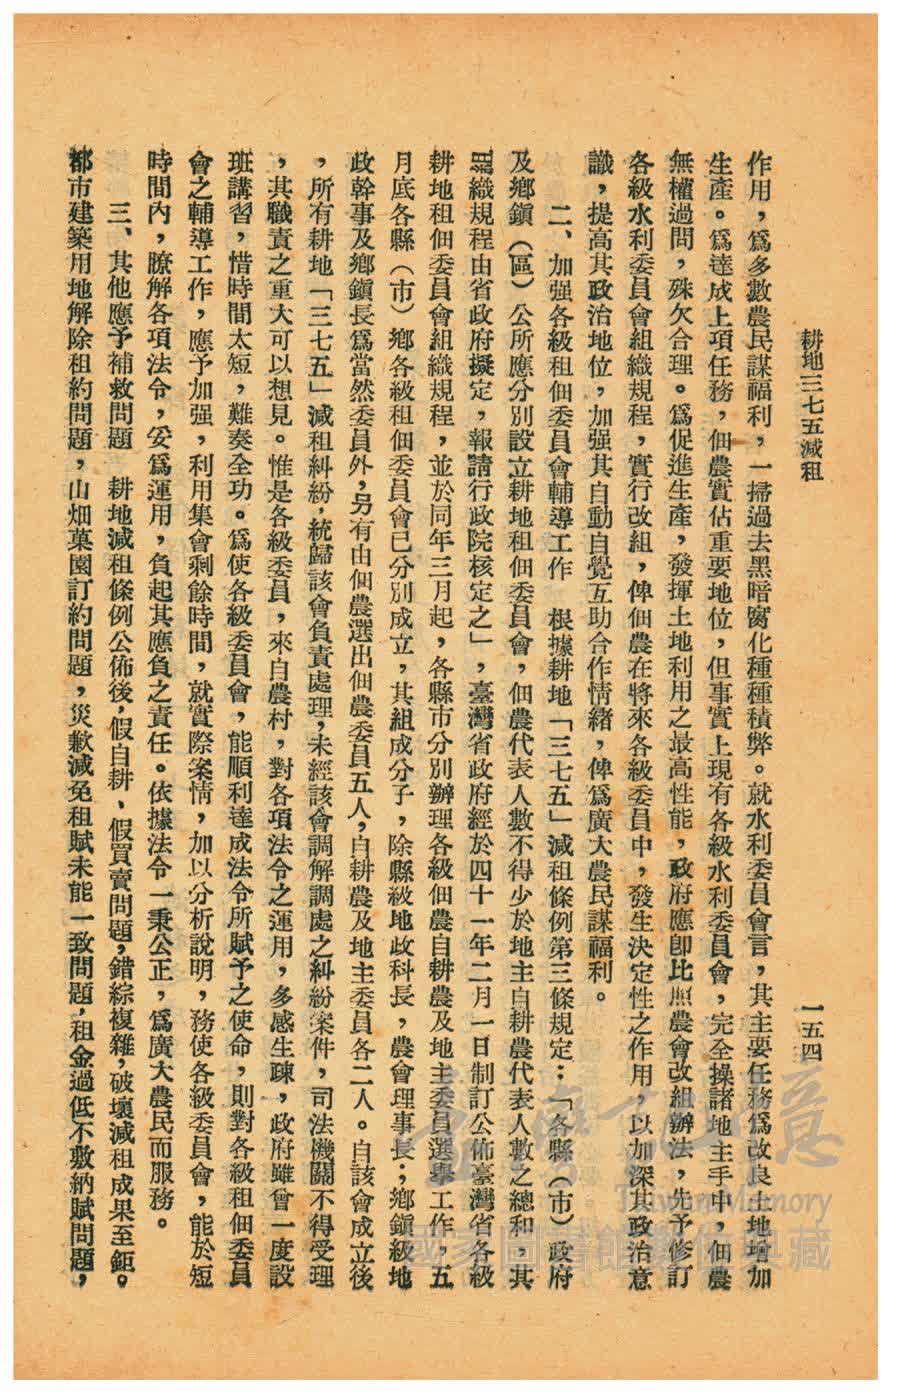 耕地三七五減租
一五四
作用，爲多數農民謀福利，一掃過去黑暗腐化種種積弊。就水利委員會言，其主要任務爲改良土地增加
生產。爲達成上項任務，佃農實佔重要地位，但事實上現有各級水利委員會，完全操諸地主手中，佃農
無權過問，殊欠合理。爲促進生產，發揮土地利用之最高性能，政府應卽比照農會改組辦法，先予修訂
各級水利委員會組織規程，實行改組，俾佃農在將來各級委員中，發生決定性之作用，以加深其政治意
識，提高其政治地位，加强其自動自覺互助合作情緒，俾爲廣大農民謀福利。
二、加强各級租佃委員會輔導工作　根據耕地「三七五」減租條例第三條規定：「各縣（市）政府
及鄉鎮（區）公所應分別設立耕地租佃委員會，佃農代表人數不得少於地主自耕農代表人數之總和，其
組織規程由省政府擬定，報請行政院核定之」，臺灣省政府經於四十一年二月一日制訂公佈臺灣省各級
耕地租佃委員會組織規程，並於同年三月起，各縣市分別辦理各級佃農自耕農及地主委員選舉工作，五
月底各縣（市）鄉各級租佃委員會已分別成立，其組成分子，除縣級地政科長，農會理事長；鄉鎮級地
政幹事及鄉鎮長爲當然委員外，另有由佃農選出佃農委員五人，自耕農及地主委員各二人。自該會成立後
，所有耕地「三七五」減租糾紛，統歸該會負責處理，未經該會調解調處之糾紛案件，司法機關不得受理
，其職責之重大可以想見。惟是各級委員，來自農村，對各項法令之運用，多感生疎，政府雖曾一度設
班講習，惜時間太短，難奏全功。爲使各級委員會，能順利達成法令所賦予之使命，則對各級租佃委員
會之輔導工作，應予加强，利用集會剩餘時間，就實際案情，加以分析說明，務使各級委員會，能於短
時間內，瞭解各項法令，妥爲運用，負起其應負之責任。依據法令一秉公正，爲廣大農民而服務。
三、其他應予補救問題　耕地減租條例公佈後，假自耕、假買賣問題，錯綜複雜，破壞減租成果至鉅。
都市建築用地解除租約問題，山畑菓園訂約問題，災歉減免租賦未能一致問題，租金過低不敷納賦問題，
臺灣記憶
Taiwan Memory
國家圖書館數位典藏